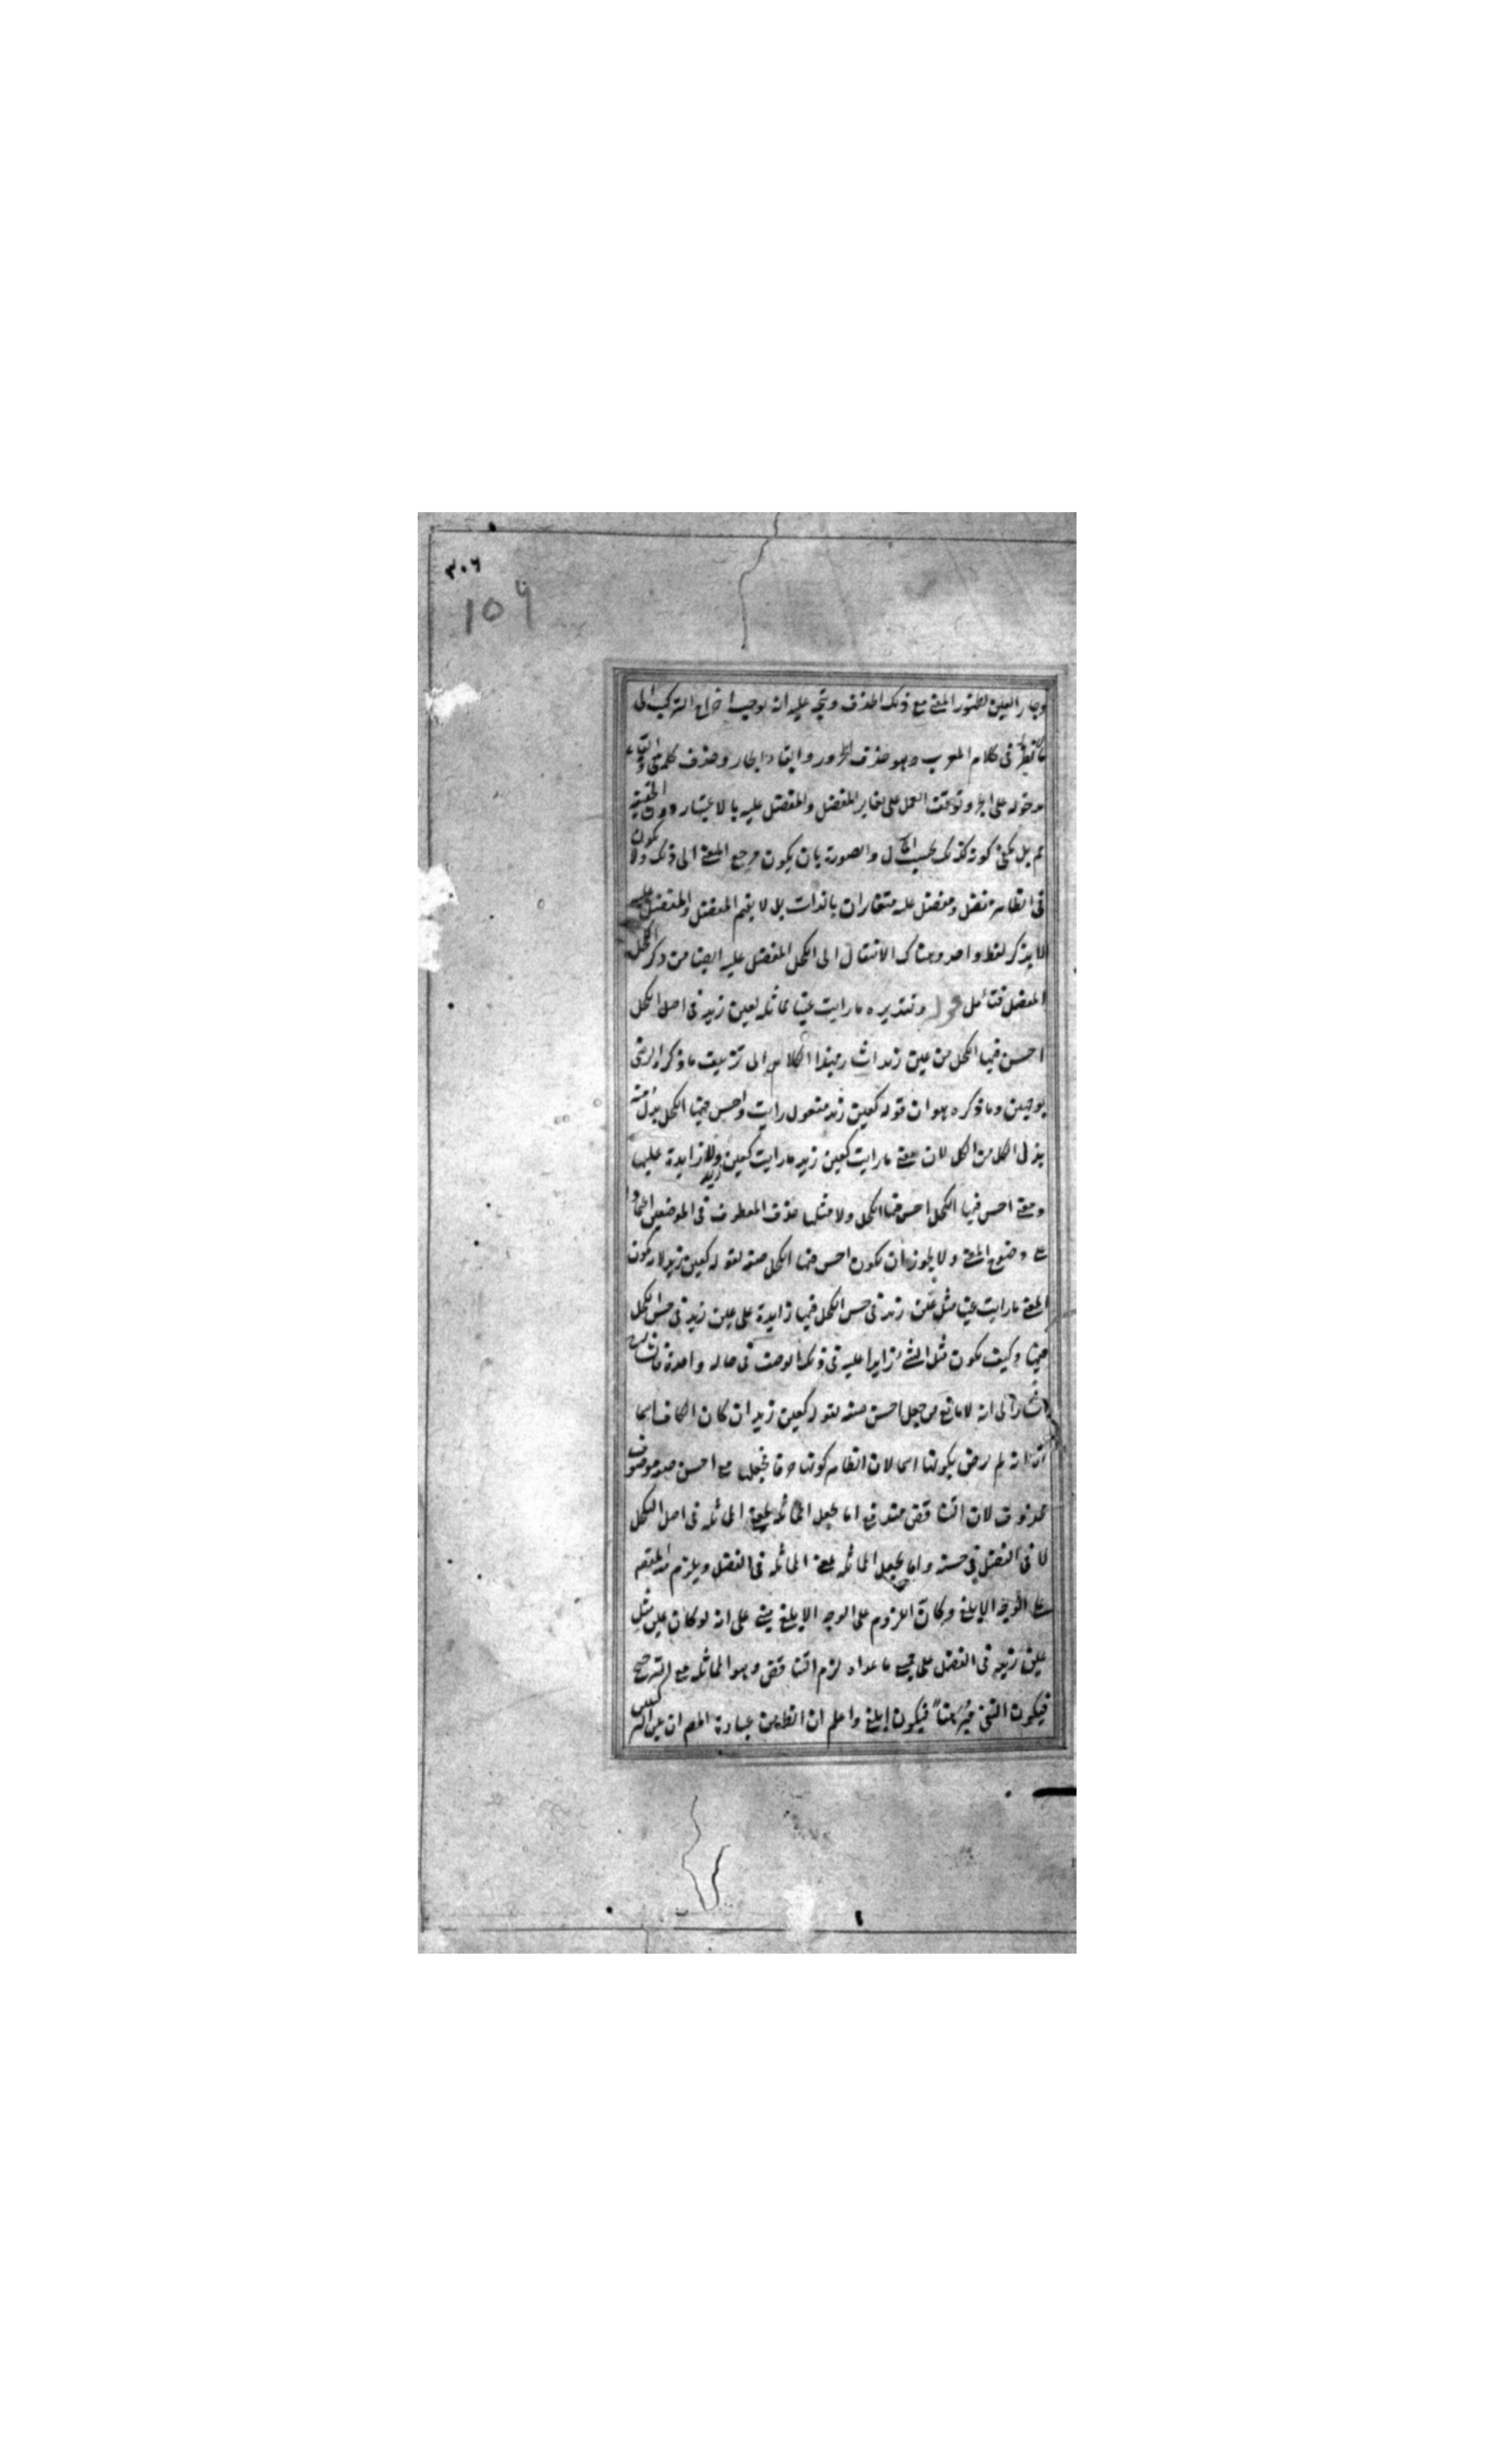 ٣٠٦
106
وجار العين لظهور المعنى مع ذلك الحذف ويتجه عليه انه يوجب اخراج التركيب الى
في كلام العرب وهو حذف المجرور وابقاء الجار وحذف كلمة في وابقاء
مدخوله على الجر وتوقف العمل على تغاير المفضل والمفضل عليه بالاعتبار دون الحقيقة
ثم بل يكفى كونه كذلك بحسب المآل والصورة بان يكون مرجع المعنى الى ذلك ولا يكون
في الظاهر مفضل ومفضل عليه متغايران بالذات بل لا يفهم المفضل والمفضل عليه
الا بذكر لفظ واحد وهناك الانتقال الى الكحل المفضل عليه ايضا من ذكر الكحل
المفضل فتأمل قوله وتقديره ما رايت عينا مماثلة لعين زيد في اصل الكحل
احسن فيها الكحل من عين زيد اشار بهذا الكلام الى تزييف ما ذكره الرضي
بوجهين وما ذكره هو ان قوله كعين زيد مفعول رايت واحسن فيها الكحل بدل منه
بدل الكل من الكل لان معنى ما رايت كعين زيد ما رايت كعين زيد ولا زايدة عليها
ومعنى احسن فيها الكحل احسن فيها الكحل ولا مثلها حذف المعطوف في الموضعين اعتمادا
على وضوح المعنى ولا يجوز ان يكون احسن فيها الكحل صفة لقوله كعين زيد لانه يكون
المعنى ما رايت عينا مثل عين زيد في حسن الكحل فيها زايدة على عين زيد في حسن الكحل
فيها وكيف يكون مثل الشئ زايدا عليه في ذلك الوصف في حالة واحدة
اشار الى انه لا مانع من جعل احسن صفة لقوله كعين زيد ان كان الكاف اسما
انه لم يرض بكونها اسما لان الظاهر كونها حرفا فجعلها مع احسن صفة موصوف
محذوف لان التناقض مندفع اما بجعل المماثلة بمعنى المماثلة في اصل الكحل
لا في الفضل في حسنه واما بجعل المماثلة بمعنى المماثلة في الفضل ويلزم المقصود
على الوجه الابلغ وكان اللزوم على الوجه الابلغ مبنى على انه لو كان عين مثل
عين زيد في الفضل على جميع ما عداه لزم التناقض وهو المماثلة مع الترجيح
فيكون النفى مبرهنا فيكون ابلغ واعلم ان الظاهر من عبارة المص ان